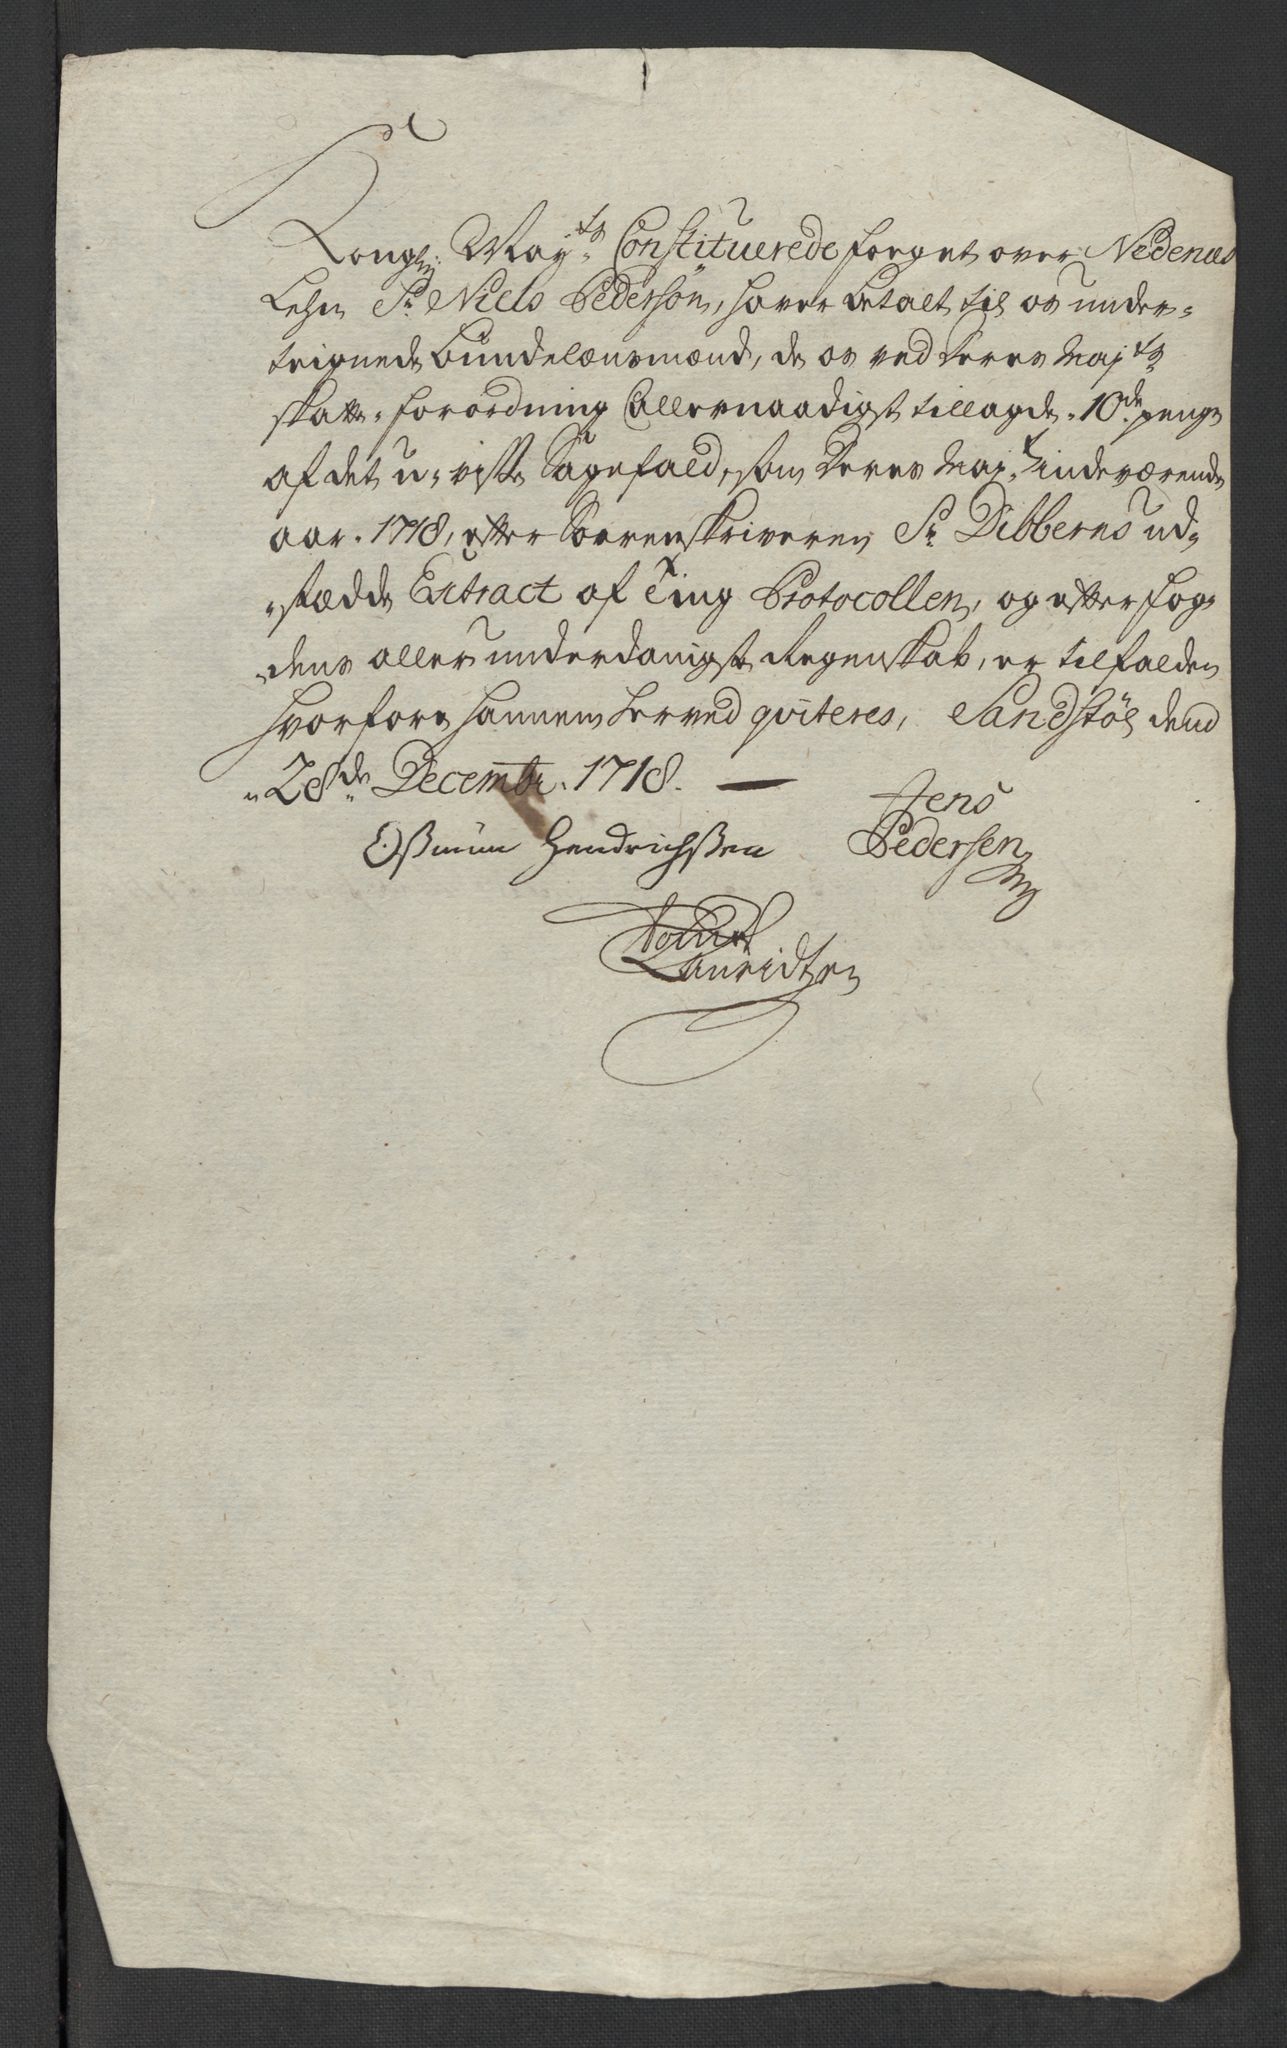 Kongl: May:ts Constituerede foeget over Nedenæs
Lehn Sr. Niels Pedersøn, haver betalt til os under-
teignede Bundelænsmænd, de os ved deres Maj:ts
skatte-forordning allernaadigst tillagde 10de penge
af det u-visse Sagefald, som deres Maj:t indeværende
aar 1718, efter Sorenskriveren Sr. Dibberns ud-
-stædde Extract af Ting Protocollen, og efter fog-
-dens allerunderdanigste Regenskab, er tilfalden
hvorfore hannem herved qviteres, Sandstøe dend
28de Decembr. 1718.
Jens
Oßmun Hendrichßen Pedersen
Lauridtzen